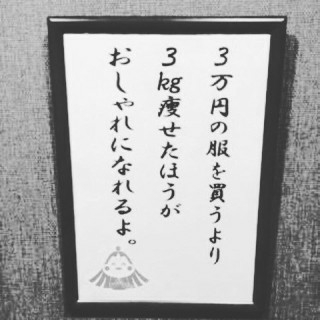 ３万円の服を買うより
３kg痩せたほうが
おしゃれになれるよ。